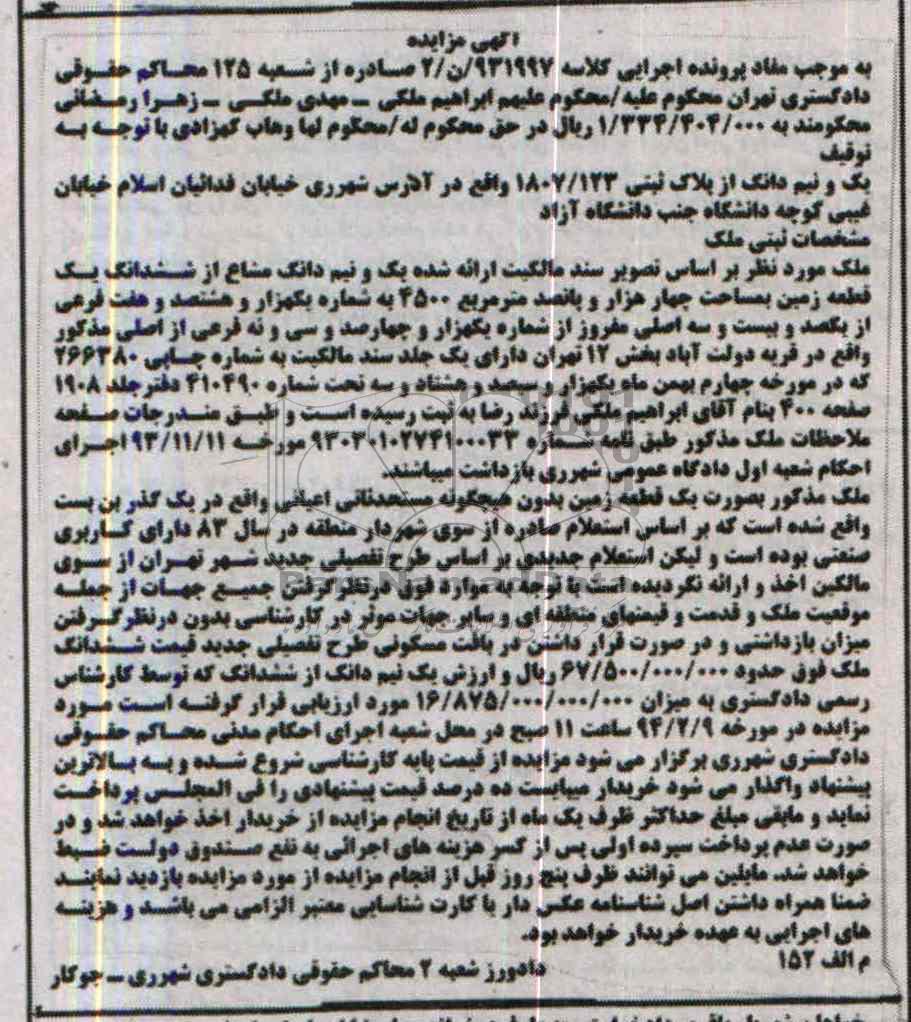 آگهی مزایده
به موجب مفاد پرونده اجرایی کلاسه ۹۳۱۹۹۷/ن/۲ صادره از شعبه ۱۲۵ محاکم حقوقی
دادگستری تهران محکوم علیه/محکوم علیهم ابراهیم ملکی - مهدی ملکی - زهرا رمضانی
محکومند به ۱/۳۳۴/۴۰۴/۰۰۰ ریال در حق محکوم له/محکوم لها وهاب کهزادی با توجه به
توقیف
یک و نیم دانگ از پلاک ثبتی ۱۸۰۷/۱۲۳ واقع در آدرس شهرری خیابان فدائیان اسلام خیابان
غیبی کوچه دانشگاه جنب دانشگاه آزاد
مشخصات ثبتی ملک
ملک مورد نظر بر اساس تصویر سند مالکیت ارائه شده یک و نیم دانگ مشاع از ششدانگ یک
قطعه زمین بمساحت چهار هزار و پانصد مترمربع ۴۵۰۰ به شماره یکهزار و هشتصد و هفت فرعی
از یکصد و بیست و سه اصلی مفروز از شماره یکهزار و چهارصد و سی و نه فرعی از اصلی مذکور
واقع در قریه دولت آباد بخش ۱۲ تهران دارای یک جلد سند مالکیت به شماره چاپی ۲۶۶۳۸۰
که در مورخه چهارم بهمن ماه یکهزار و سیصد و هشتاد و سه تحت شماره ۴۱۰۴۹۰ دفترجلد ۱۹۰۸
صفحه ۴۰۰ بنام آقای ابراهیم ملکی فرزند رضا به ثبت رسیده است و طبق مندرجات صفحه
ملاحظات ملک مذکور طبق نامه شماره ۹۳۰۳۰۱۰۲۷۴۱۰۰۰۳۳ مورخه ۹۳/۱۱/۱۱ اجرای
احکام شعبه اول دادگاه عمومی شهرری بازداشت میباشند.
ملک مذکور بصورت یک قطعه زمین بدون هیچگونه مستحدثاتی اعیانی واقع در یک گذر بن بست
واقع شده است که بر اساس استعلام صادره از سوی شهردار منطقه در سال ۸۳ دارای کاربری
صنعتی بوده است و لیکن استعلام جدیدی بر اساس طرح تفصیلی جدید شهر تهران از سوی
مالکین اخذ و ارائه نکردیده است با توجه به موارد فوق درنظرگرفتن جمیع جهات از جمله
موقعیت ملک و قدمت و قیمتهای منطقه ای و سایر جهات موثر در کارشناسی بدون درنظرگرفتن
میزان بازداشتی و در صورت قرار داشتن در بافت مسکونی طرح تفصیلی جدید قیمت ششدانگ
ملک فوق حدود ۶۷/۵۰۰/۰۰۰/۰۰۰ ریال و ارزش یک نیم دانگ از ششدانگ که توسط کارشناس
رسمی دادگستری به میزان ۱۶/۸۷۵/۰۰۰/۰۰۰ مورد ارزیابی قرار گرفته است مورد
مزایده در مورخه ۹۴/۲/۹ ساعت ۱۱ صبح در محل شعبه اجرای احکام مدنی محاکم حقوقی
دادگستری شهرری برگزار می شود مزایده از قیمت پایه کارشناسی شروع شده و به بالاترین
پیشنهاد واگذار می شود خریدار میبایست ده درصد قیمت پیشنهادی را فی المجلس پرداخت
نماید و مابقی مبلغ حداکثر ظرف یک ماه از تاریخ انجام مزایده از خریدار اخذ خواهد شد و در
صورت عدم پرداخت سپرده اولی پس از کسر هزینه های اجرائی به نفع صندوق دولت ضبط
خواهد شد. مایلین می توانند ظرف پنج روز قبل از انجام مزایده از مورد مزایده بازدید نمایند
ضمنا همراه داشتن اصل شناسنامه عکس دار یا کارت شناسایی معتبر الزامی می باشد و هزینه
های اجرایی به عهده خریدار خواهد بود.
م الف ۱۵۲
دادورز شعبه ۲ محاکم حقوقی دادگستری شهرری - جوکار